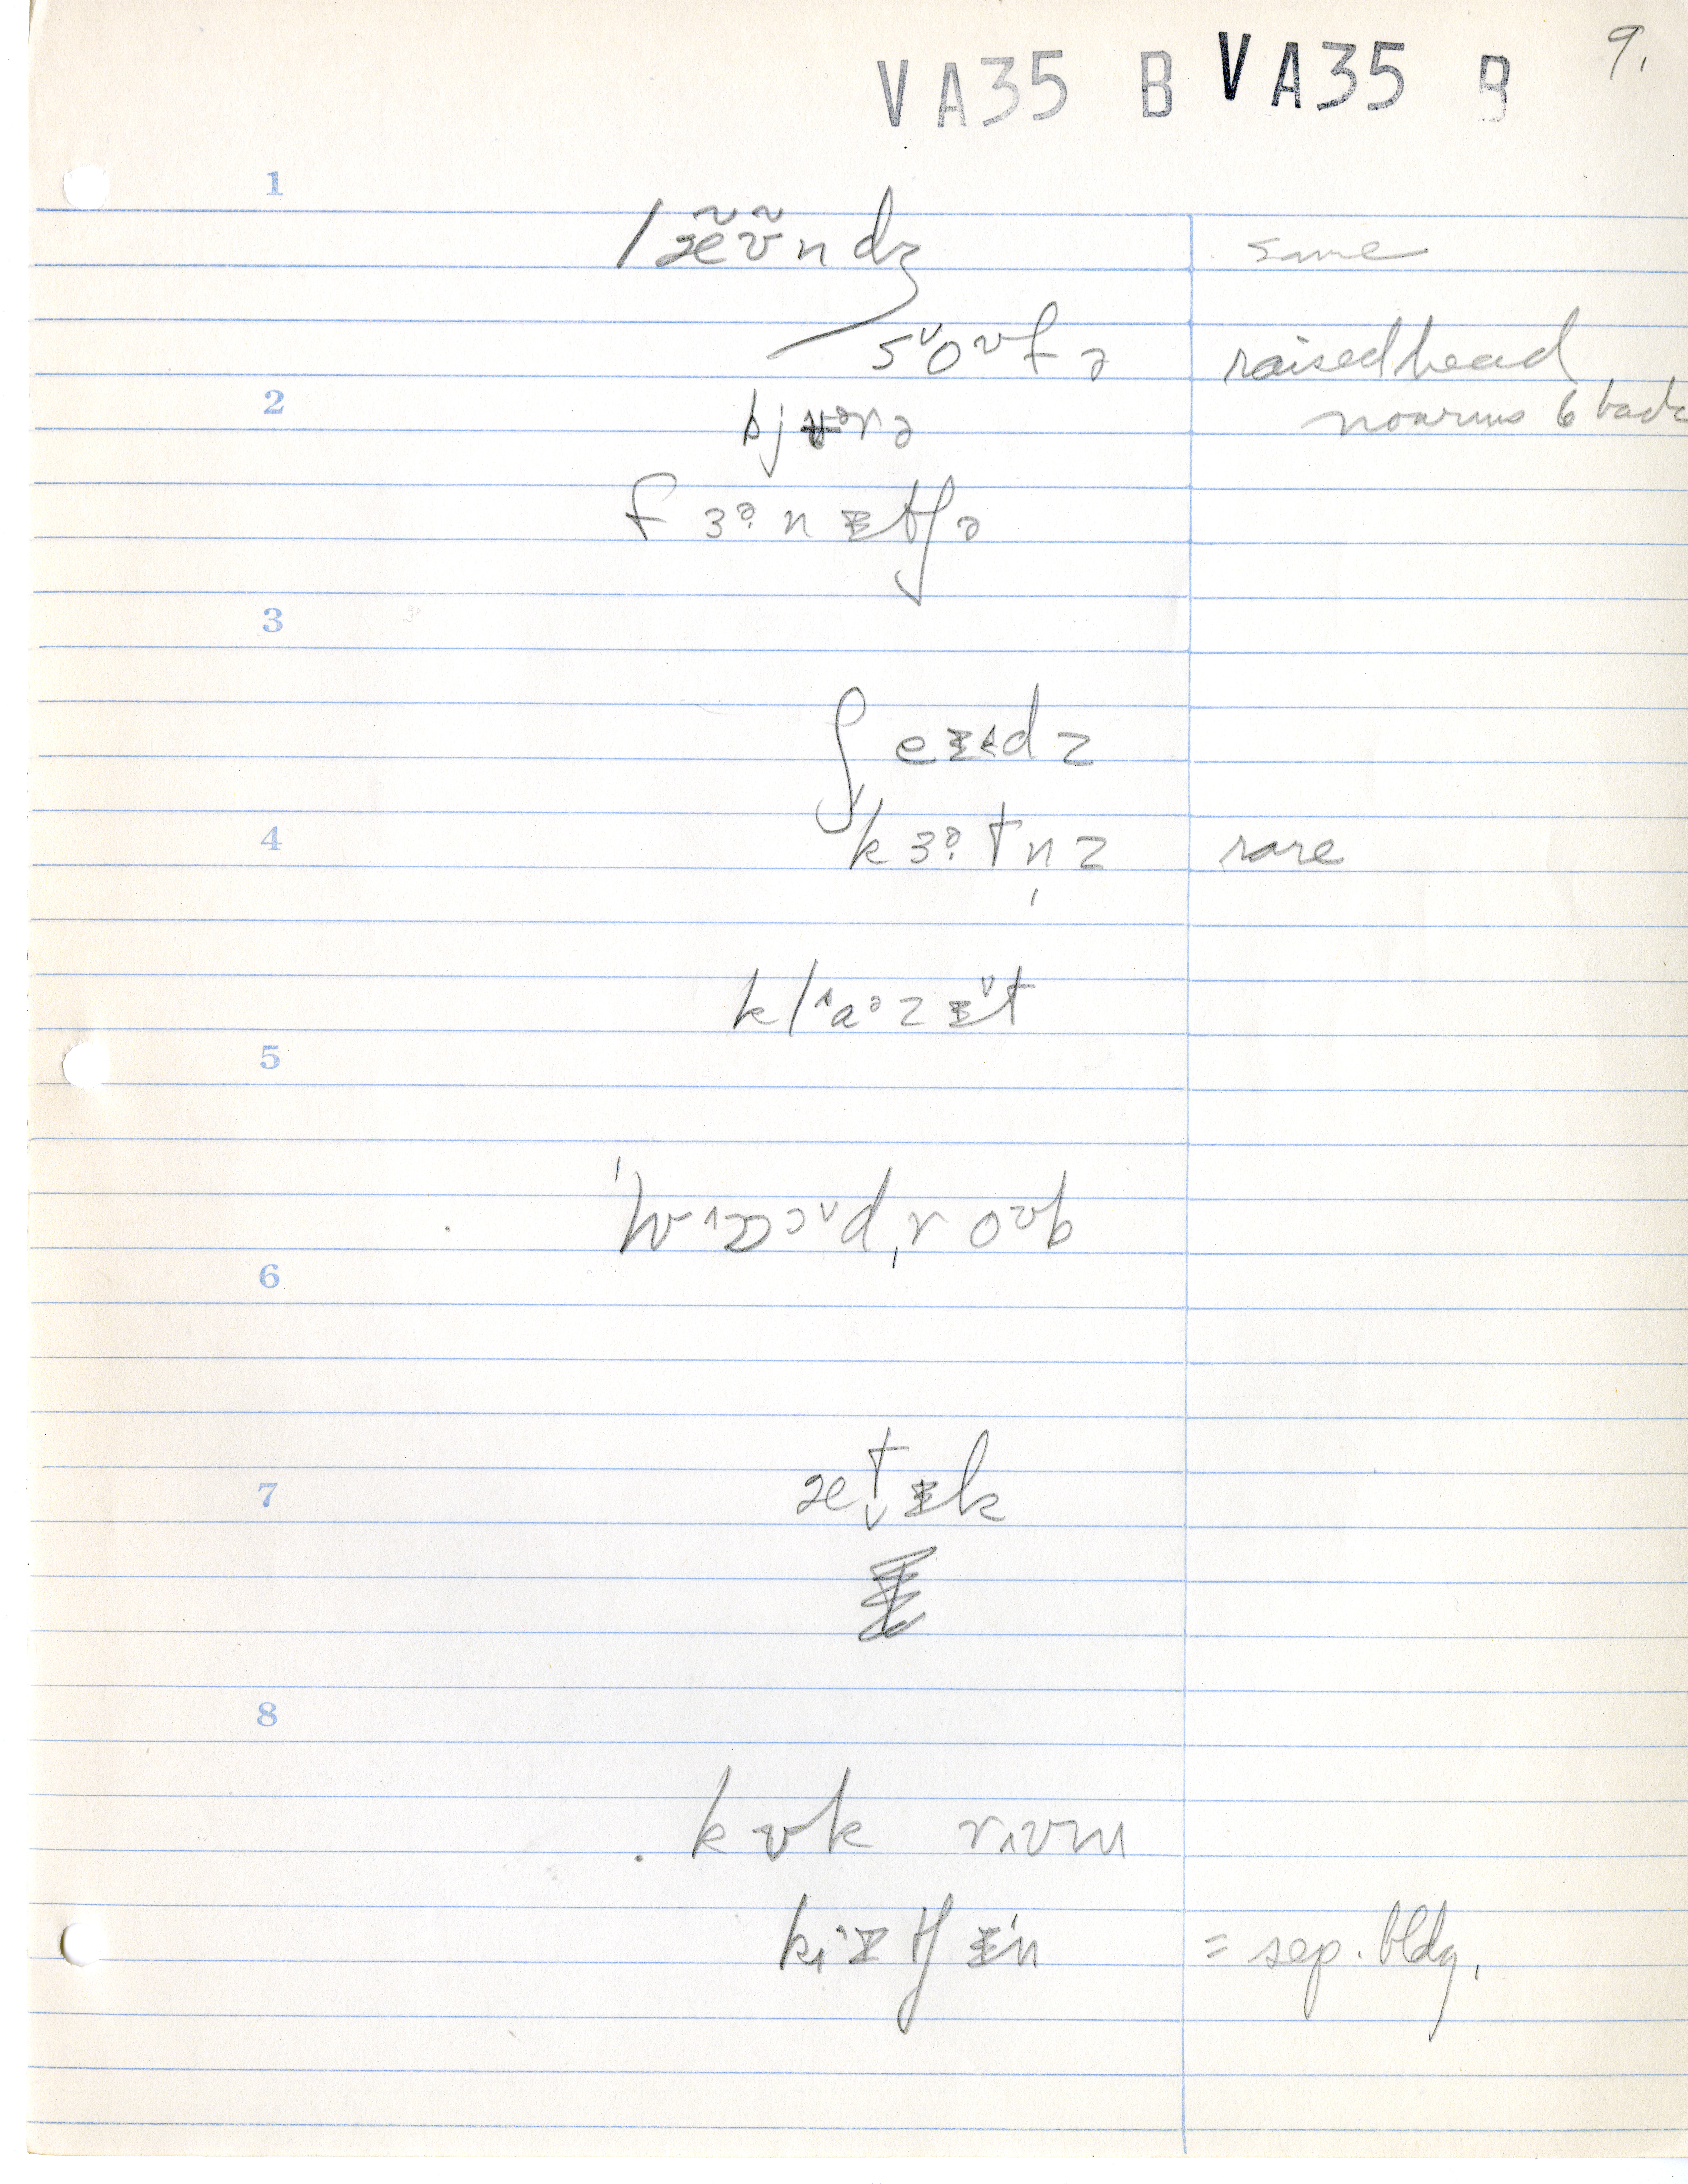 VA35 B VA35 B 9.
1
læ̃ʊ̃ndʒ same
sᵛoʊfə raised head
2
bjʉᵊrə no arms & back
fɜᵊ·nɪtʃə
3
ʃeɪdz
4
kɜᵊ·tn̩z rare
klˆaᵊzɪᵛt
5
6
7
ætɪk
8
kʊk rʊm
kɪtʃɪn = sep. bldg.